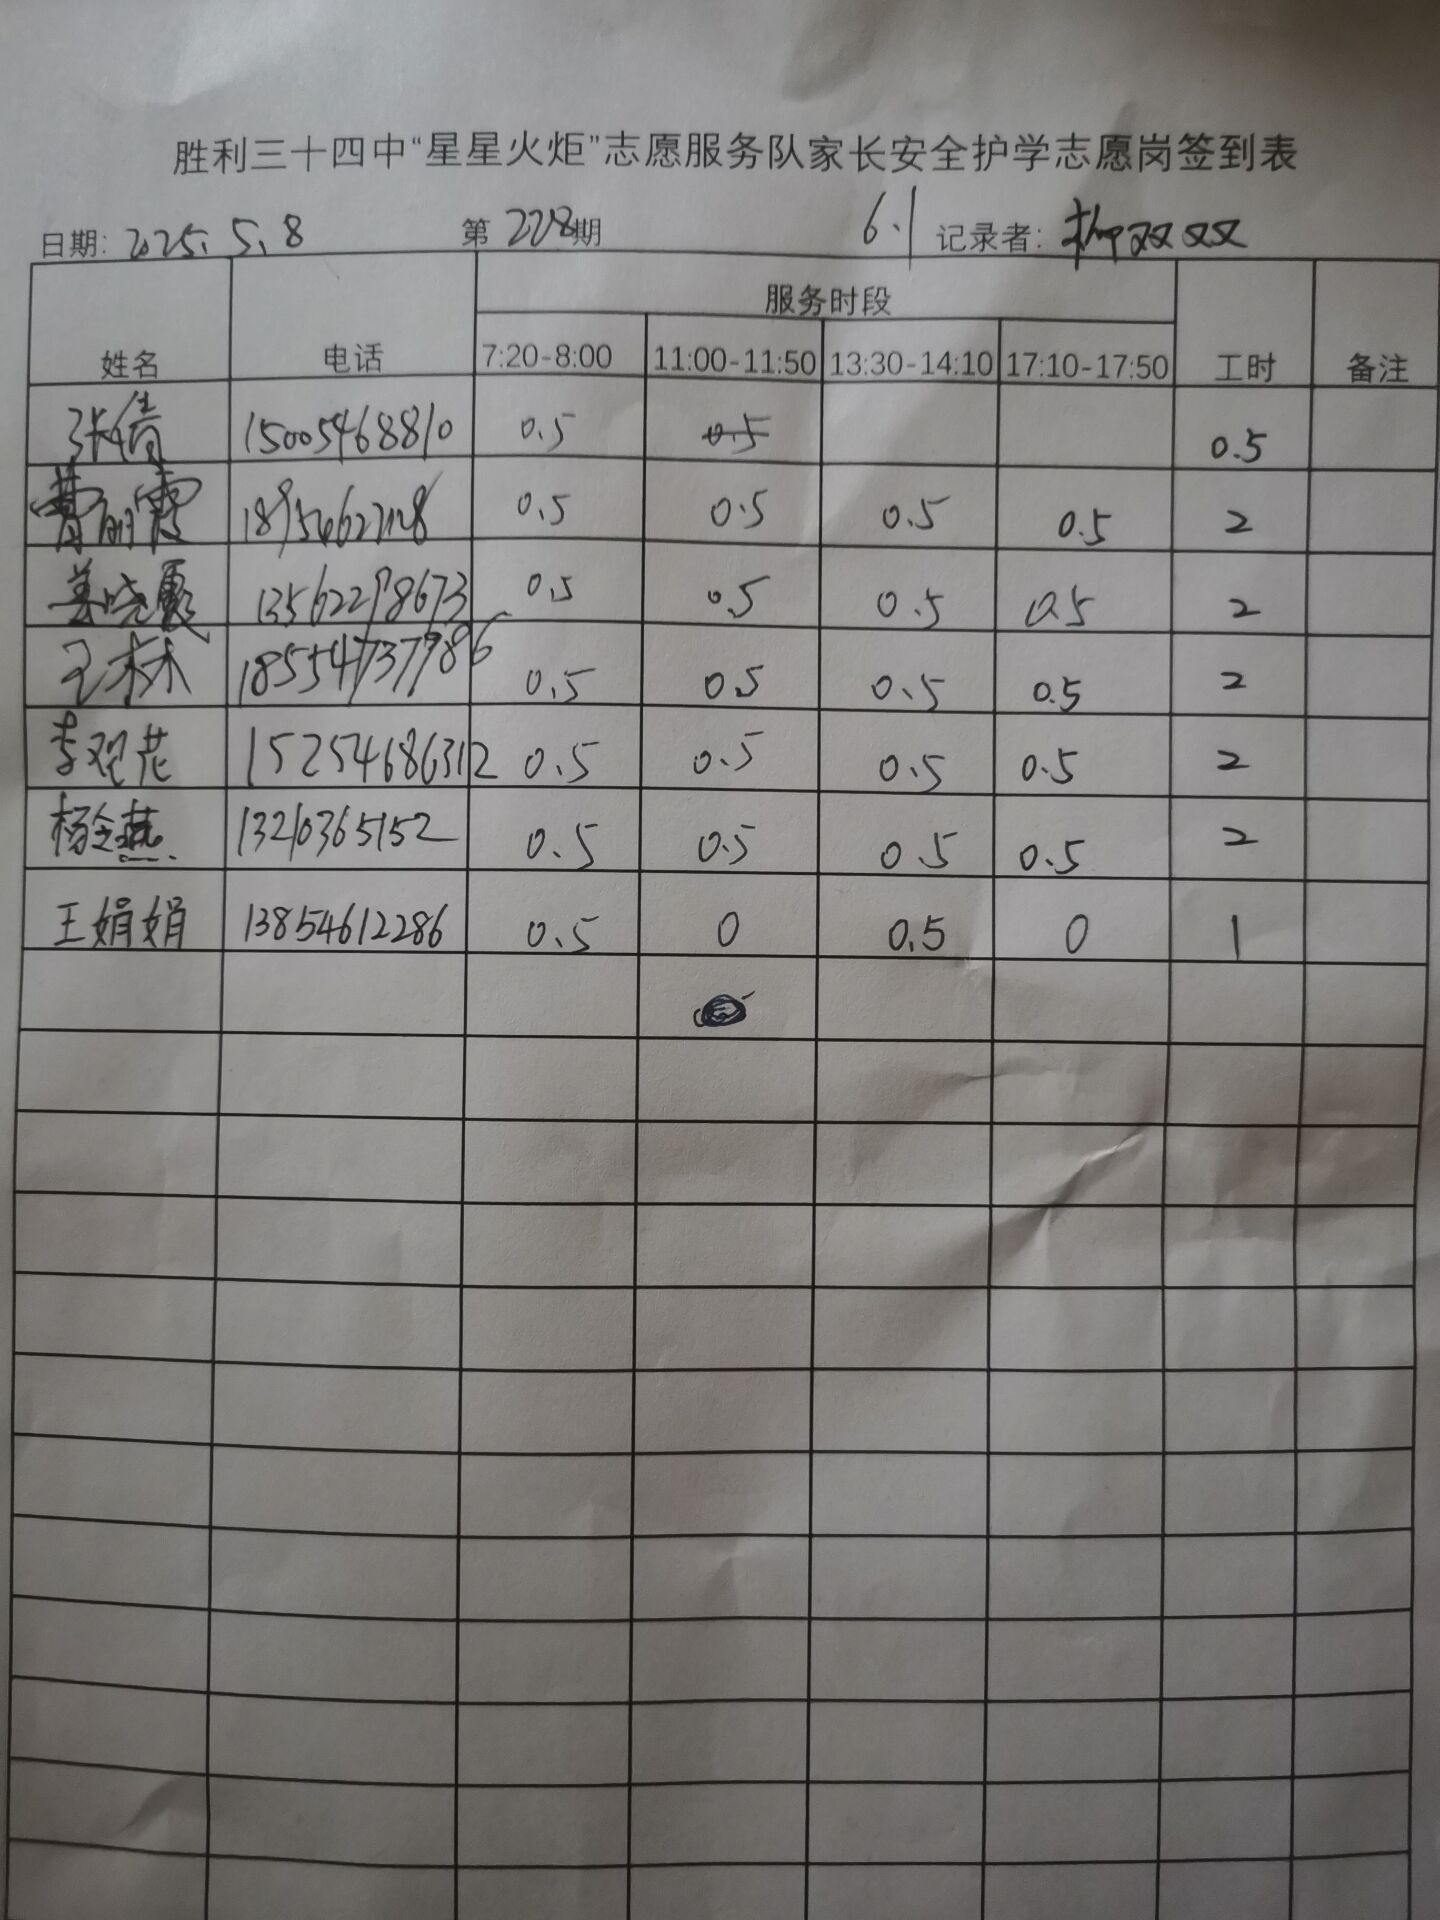 胜利三十四中“星星火炬”志愿服务队家长安全护学志愿岗签到表
日期: 2025.5.8 第228期 6.1 记录者: 柳双双
服务时段
姓名 电话 7:20-8:00 11:00-11:50 13:30-14:10 17:10-17:50 工时 备注
张倩 15005468810 0.5 0.5 0.5
霞 0.5 0.5 0.5 0.5 2
姜晓霞 13562298673 0.5 0.5 0.5 0.5 2
王林 18554737786 0.5 0.5 0.5 0.5 2
李观花 15254686312 0.5 0.5 0.5 0.5 2
杨全燕 13210365152 0.5 0.5 0.5 0.5 2
王娟娟 13854612286 0.5 0 0.5 0 1